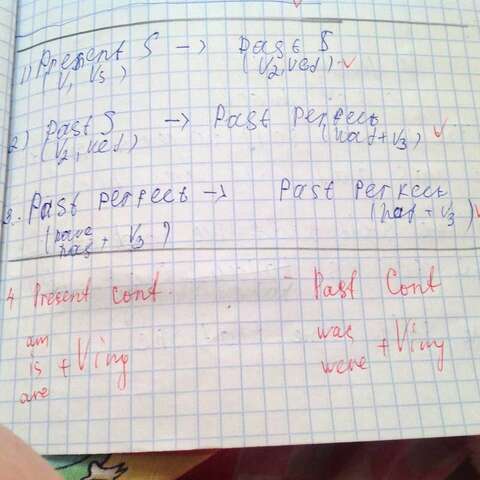 1) Present S → Past S
(V, Vs) (V2, Ved) v
2) Past S → Past Perfect
(V2, Ved) (had + V3) v
3. Past perfect → Past Perfect
(have has + V3) (had + V3) v
4 Present cont. – Past Cont
am was
is + Ving + Ving
are were